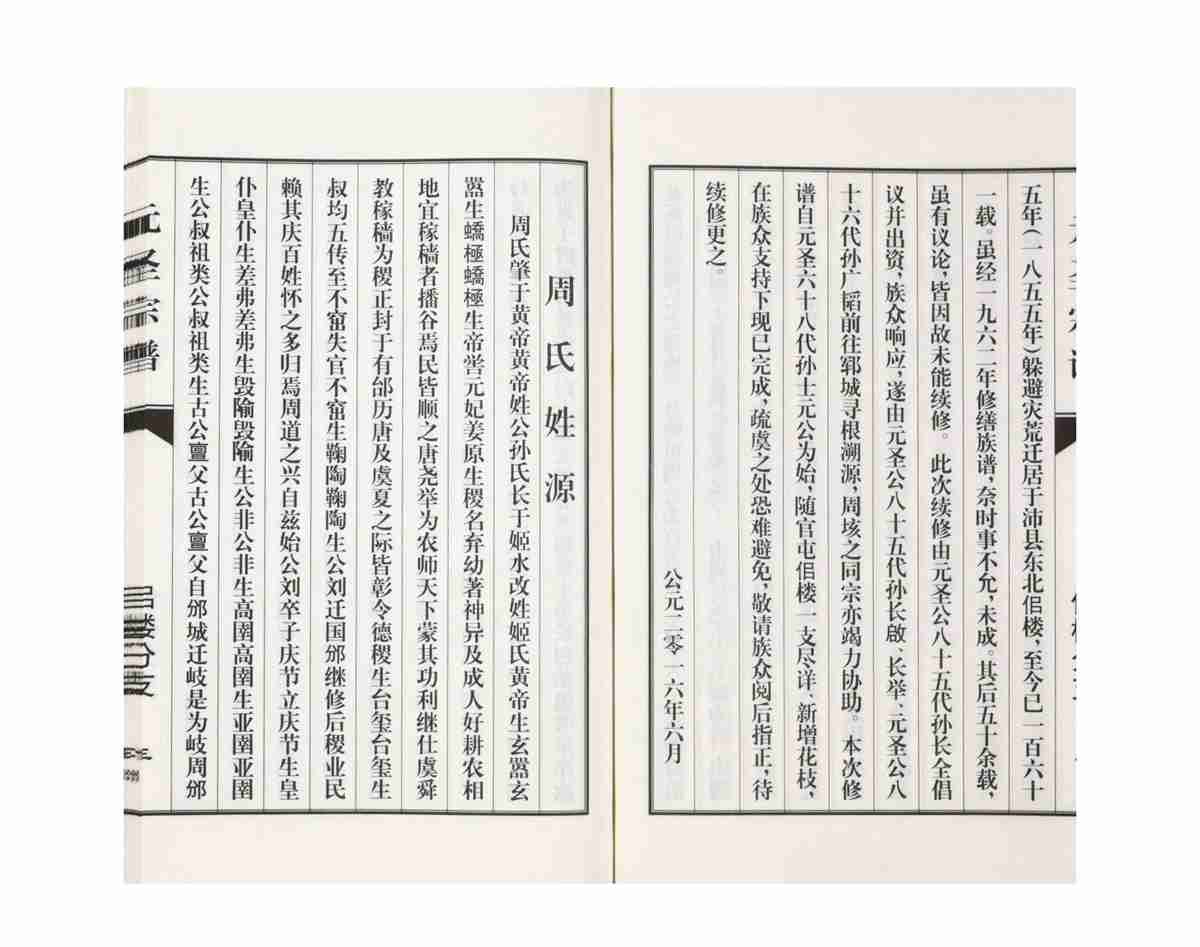 五年(一八五五年)躲避灾荒迁居于沛县东北佀楼,至今已一百六十
一载。虽经一九六二年修缮族谱,奈时事不允,未成。其后五十余载,
虽有议论,皆因故未能续修。此次续修由元圣公八十五代孙长全倡
议并出资,族众响应,遂由元圣公八十五代孙长啟、长举、元圣公八
十六代孙广韬前往郓城寻根溯源,周垓之同宗亦竭力协助。本次修
谱自元圣六十八代孙士元公为始,随官屯佀楼一支尽详、新增花枝,
在族众支持下现已完成,疏虞之处恐难避免,敬请族众阅后指正,待
续修更之。
公元二零一六年六月
周氏姓源
周氏肇于黄帝黄帝姓公孙氏长于姬水改姓姬氏黄帝生玄嚣玄
嚣生蟜極蟜極生帝喾元妃姜原生稷名弃幼著神异及成人好耕农相
地宜稼穑者播谷焉民皆顺之唐尧举为农师天下蒙其功利继仕虞舜
教稼穑为稷正封于有邰历唐及虞夏之际皆彰令德稷生台玺台玺生
叔均五传至不窋失官不窋生鞠陶鞠陶生公刘迁国邠继修后稷业民
赖其庆百姓怀之多归焉周道之兴自兹始公刘卒子庆节立庆节生皇
仆皇仆生差弗差弗生毁隃毁隃生公非公非生高圉高圉生亚圉亚圉
生公叔祖类公叔祖类生古公亶父古公亶父自邠城迁岐是为岐周邠
元圣宗谱
佀楼分支